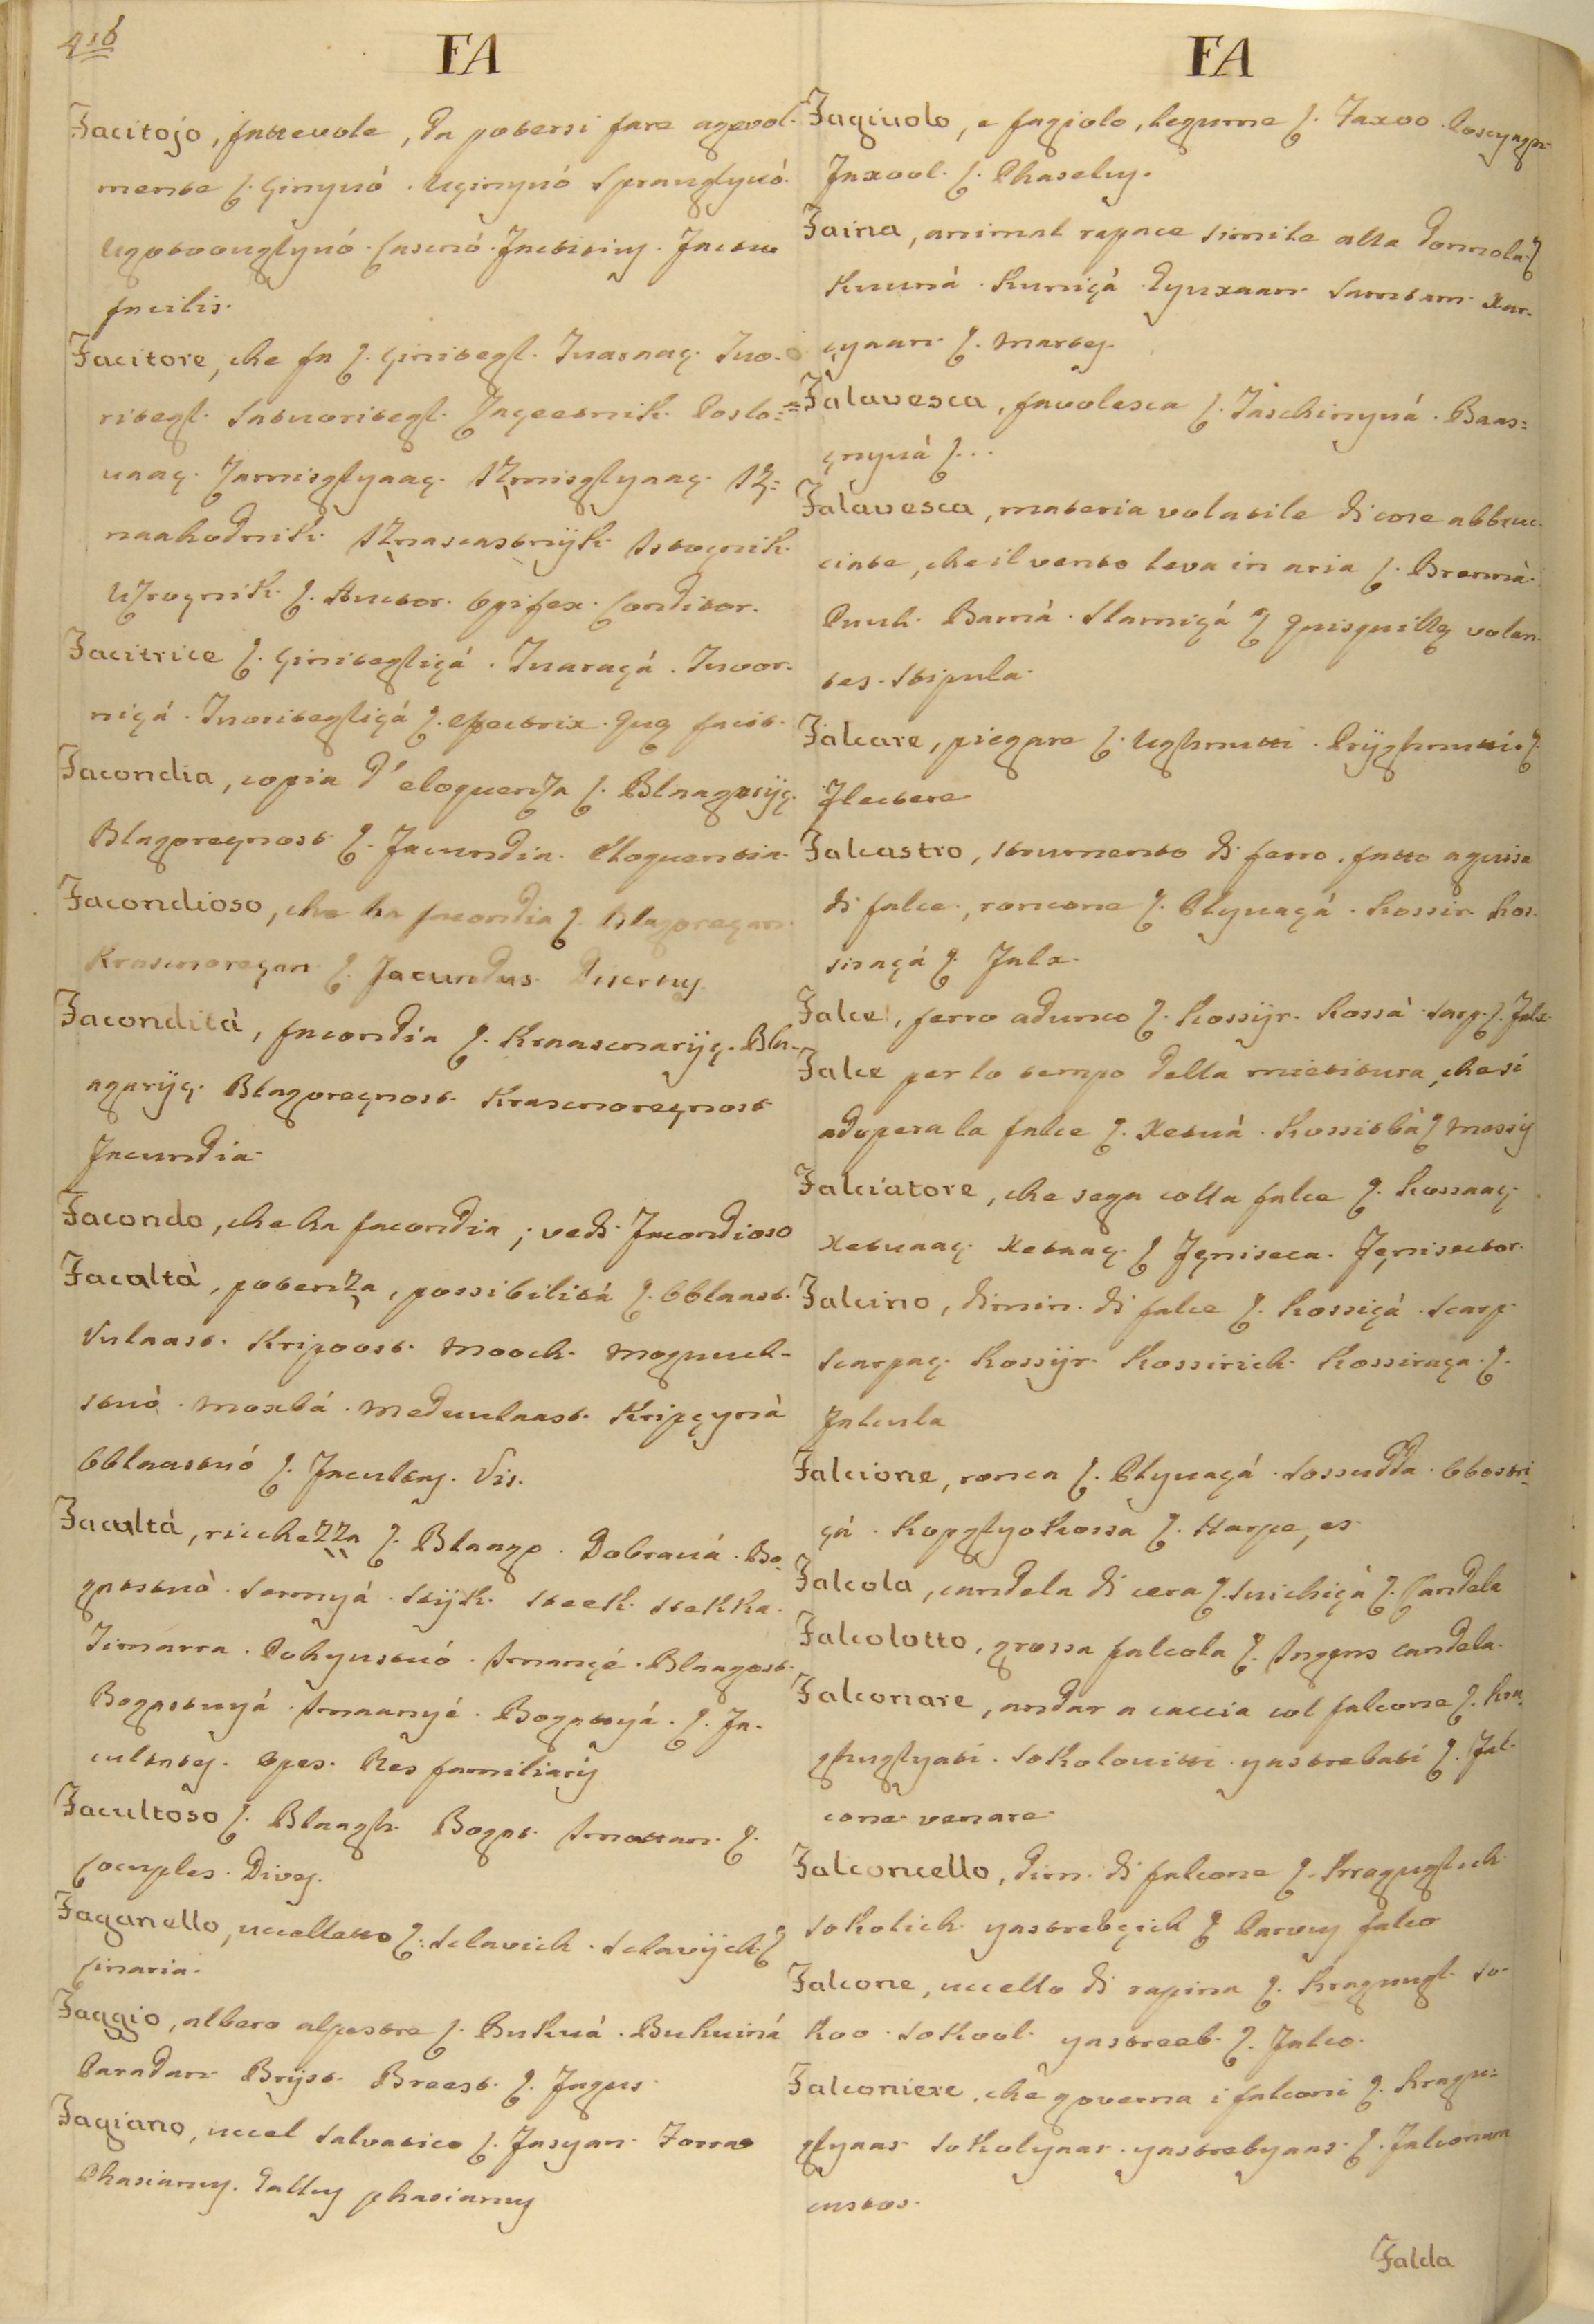 416
FA
Facitojo, fattevole, da potersi fare agevol-
mente ſ. Ginyvó. Uginyvó Sprauglyvó.
Ugotoouglyvó. Lascnó. Factitiuſ. Factuu
facilis.
Facitore, che fa ſ. Ginitegl. Tvaraaç. Tvo-
ritegl. Satvoritegl. Zaçeetnik. Poslo-
vaaç. Zamisglyaaç. Izmisglyaaç. Iz-
naahodnik. Iznascastnÿk. Istognik.
Uzrognik. ſ. Auctor. Opifex. Conditor.
Facitrice ſ. Ginitegliçá. Tvaraçá. Tvor-
niçá. Tvoritegliçá ſ. effectrix. Quę facit.
Facondia, copia d'eloquenza ſ. Blaagorÿç.
Blagoreçnost ſ. Facundia. Eloquentia.
Facondioso, che ha facondia ſ. Blagoreçan.
Krasnoreçan ſ. Facundus. Disertuſ.
Facondità, facondia ſ. Kraasnarÿç. Bla-
agarÿç. Blagoreçnost. Krasnoreçnost
Facundia.
Facondo, che ha facondia; vedi Facondioso
Facoltà, potenza, possibilità ſ. Oblaast.
Vulaast. Kripoost. Mooch. Moguch-
stvó. Moxbá. Meduulaast. Kripçyná
Oblaastvó ſ. Facultaſ. Vis.
Facultà, ricchezza ſ. Blaago. Dobravá. Bo-
gatstvó. Sermyá. Stÿk. Steek. Stekka.
Timarra. Pokyustvó. Imançé. Blaagost.
Bogatstvyá. Imaanyé. Bogatstyá. ſ. Fa-
cultateſ. Opes. Res familiariſ
Facultoso ſ. Blaagh. Bogat. Imottan. ſ.
Locuples. Diveſ.
Faganello, uccelletto ſ. Sclavich. Sclavÿch. ſ
Linaria.
Faggio, albero alpestre ſ. Bukvá. Bukviná
Paradan. Brÿst. Breest. ſ. Fagus.
Fagiano, uccel salvatico ſ. Fasyan. Forrao
Phasianuſ. Galluſ phasianuſ
FA
Fagiuolo, e fagiolo, legume ſ. Faxoo. Poscyagn.
Faxool. ſ. Phaseluſ.
Faina, animal rapace simile alla donnola. ſ
Kuuná. Kuniçá. Tyuxaan. Samtam. Xar-
çyaan. ſ. Marteſ.
Falavesca, favolesca ſ. Taschinyvá. Baas-
gnyvá ſ...
Falavesca, materia volatile di cose abbruc-
ciate, che il vento leva in aria ſ. Brenná.
Puuh. Barná. Slamiçá ſ Quisquilię volan-
tes. Stipula.
Falcare, piegare ſ. Ughnutti. Prÿghnutti. ſ
Flectere
Falcastro, strumento di ferro. fatto aguisa
di falce, roncone ſ. Clyvaçá. Kossir. Kos-
siraçá ſ. Falx.
Falce, ferro adunco ſ. Kossÿr. Kossà. Sarp. ſ. Falx.
Falce per lo tempo della mietitura, che si
adopera la falce ſ. Xetvá. Kossitbà ſ Messiſ
Falciatore, che sega colla falce ſ. Kossaaç.
Xetvaaç. Xetaaç. ſ Fęniseca. Fęnisector.
Falcino, dimin. di falce ſ. Kossiçà. Scarp.
Scarpaç. Kossÿr. Kossirich. Kossiraça. ſ.
Falcula
Falcione, ronca ſ. Clyvaçá. Sossudda. Obostri-
çá. Kopglyo Kossa ſ. Harpe, es.
Falcola, candela di cera ſ. Svichiçá ſ. Candela
Falcolotto, grossa falcola ſ. Ingens candela.
Falconare, andar a caccia col falcone ſ. Kra-
ghuglyati. Sokolovitti. yastrebati ſ. Fal-
cone venare.
Falconcello, dim. di falcone ſ. Kraguglich
Sokolich. yastrebçich ſ Parvuſ falco
Falcone, uccello di rapina ſ. Kraguugl. So-
koo. Sokool. yastreeb. ſ. Falco.
Falconiere, che governa i falconi ſ. Kragu-
glyaar. Sokolyaar. yastrebyaar. ſ. Falconum
custos.
Falda